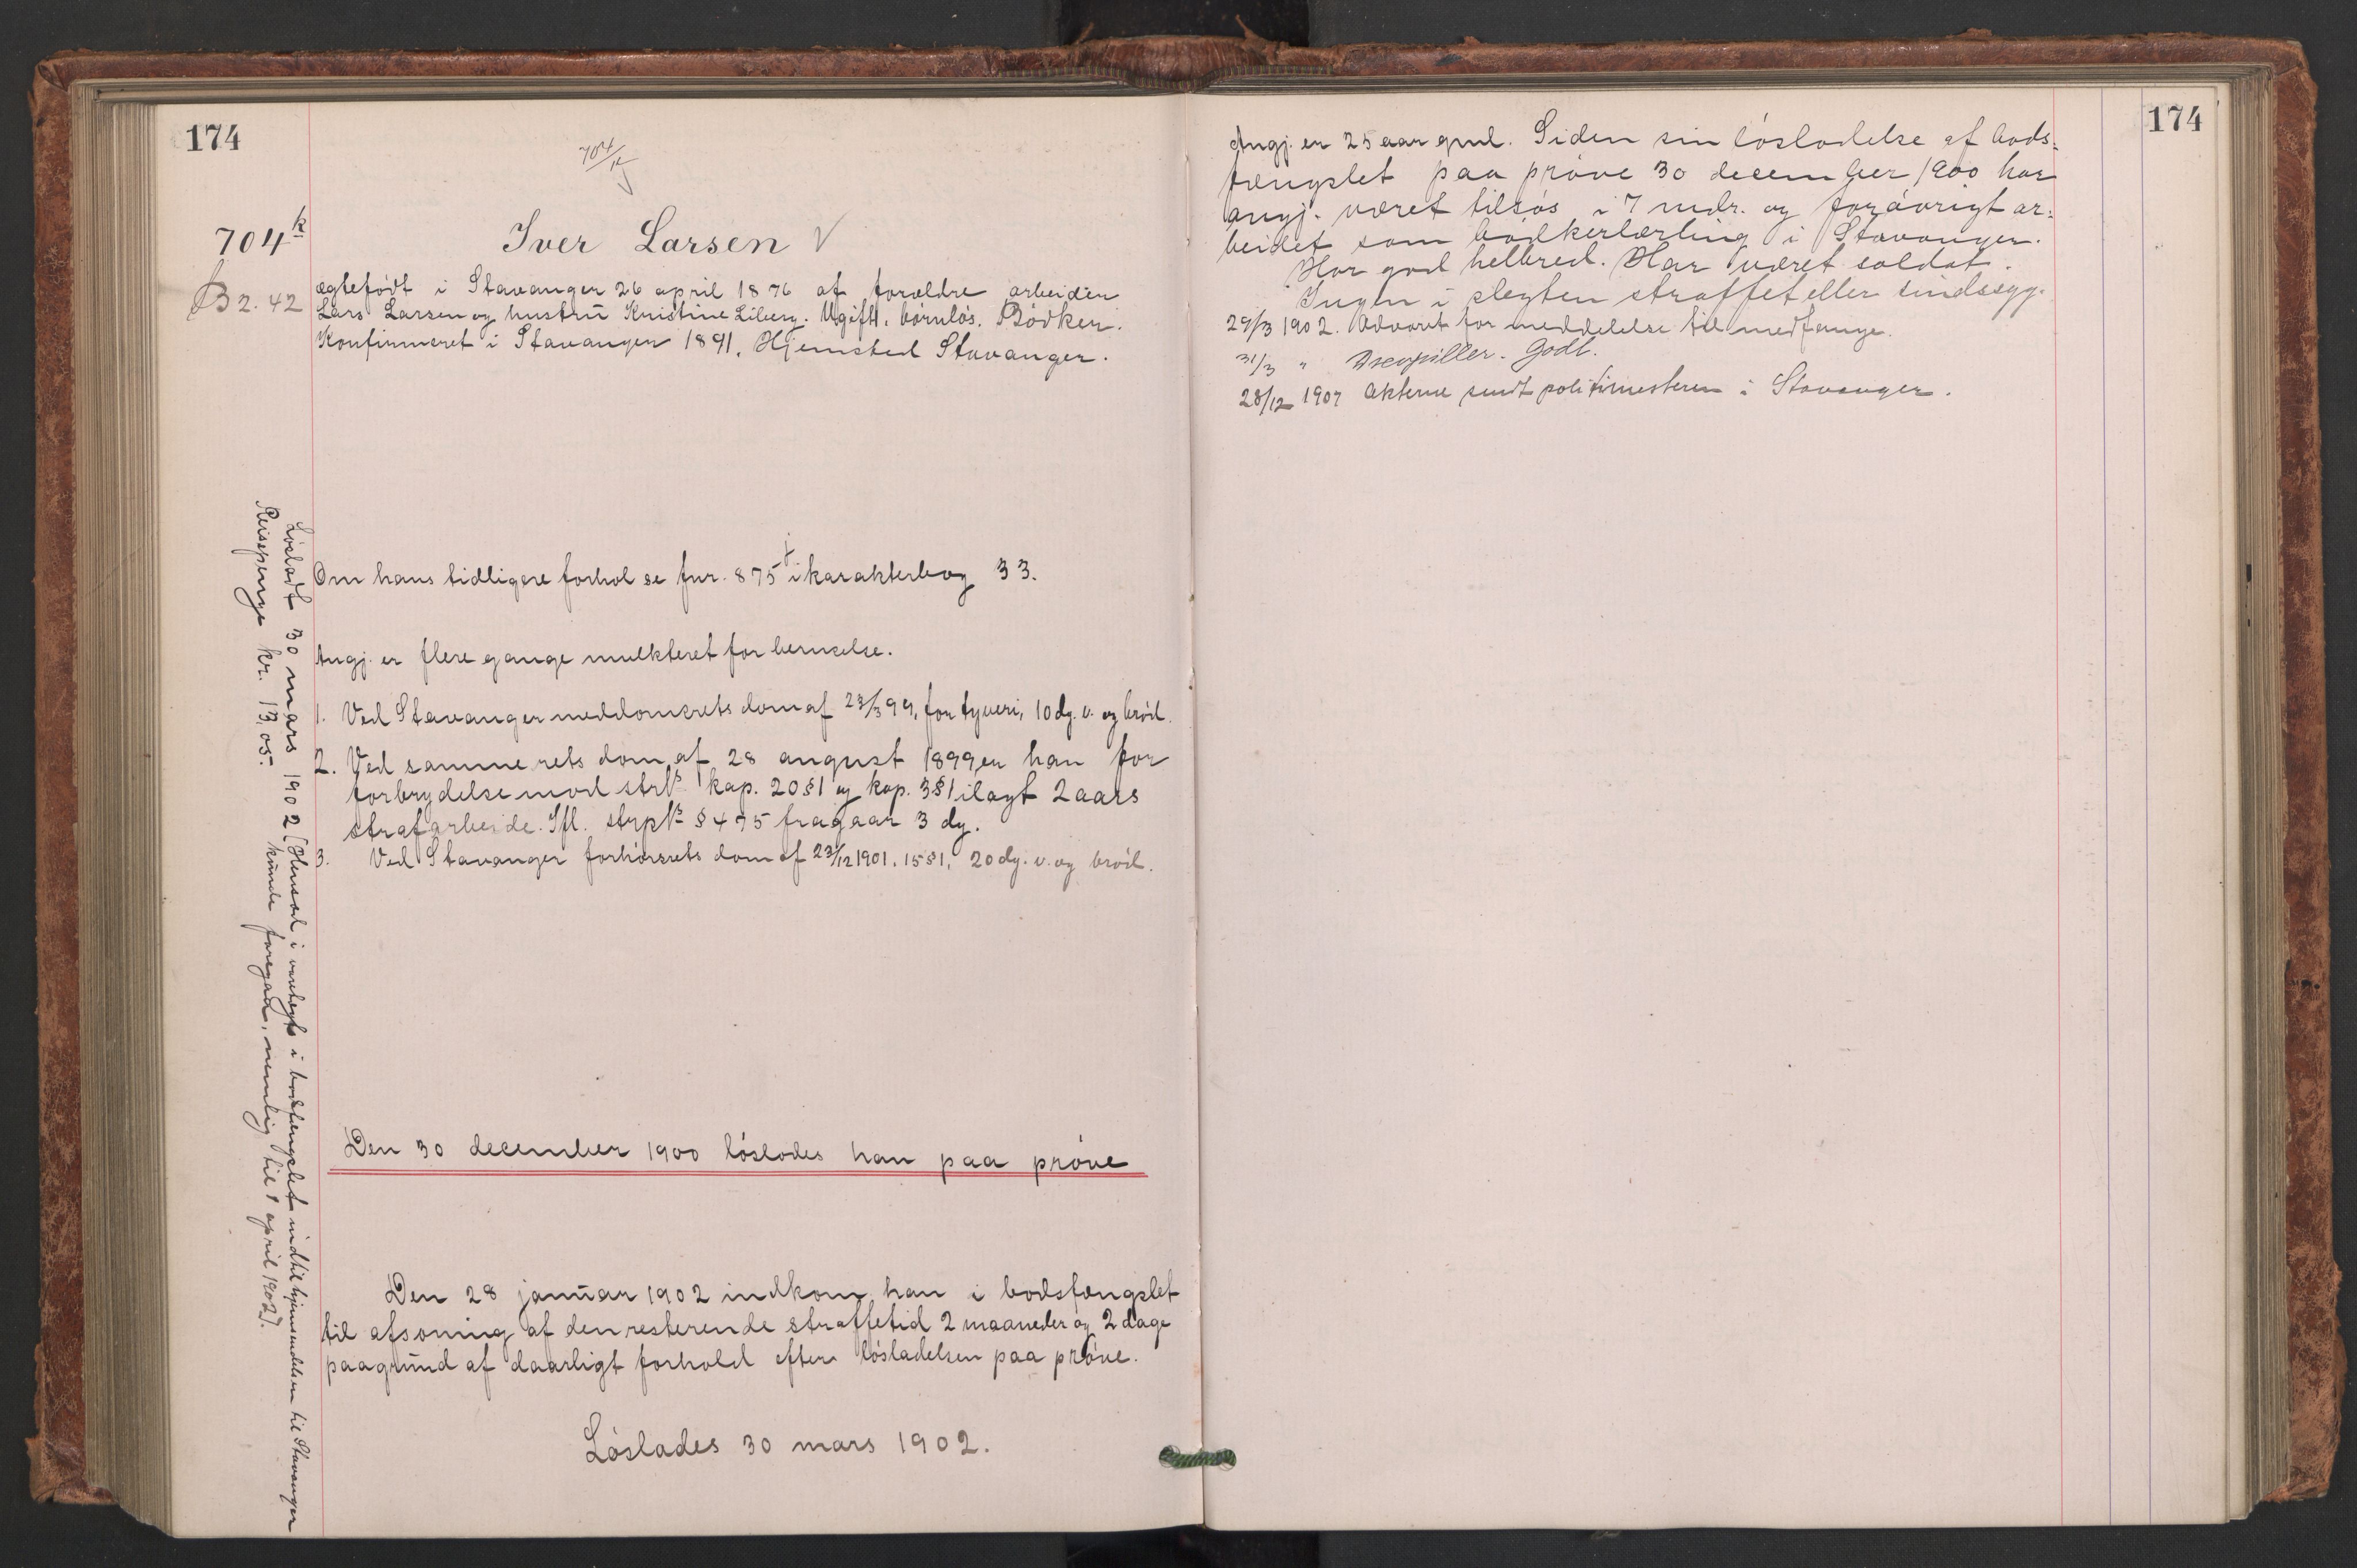 174
704/k
704k
B 2. 42
Iver Larsen V
ægtefödt i Stavanger 26 april 1876 af forældre arbeider
Lars Larsen og hustru Kristine Liberg. Ugift, börnlös. Bödker.
Konfirmeret i Stavanger 1891. Hjemsted Stavanger.
Om hans tidligere forhol se fnr. 875 i karakterbog 33.
Angj. er flere gange mulkteret for beruselse.
1. Ved Stavanger meddomsrets dom af 23/3 99, for tyveri, 10 dg. v. og bröd.
2. Ved samme rets dom af 28 august 1899 er han for
forbrydelse mod strl. kap. 20 § 1 og kap. 3 § 1 ilagt 2 aars
strafarbeide. Ifl. strpl. § 475 fragaar 3 dg.
3. Ved Stavanger forhörsrets dom af 23/12 1901, 15 § 1, 20 dg. v. og bröd.
Den 30 december 1900 löslodes han paa pröve
Den 28 januar 1902 indkom han i bodsfængslet
til afsoning af den resterende straffetid 2 maaneder og 2 dage
paagrund af daarligt forhold efter lösladelsen paa pröve.
Löslades 30 mars 1902.
Lösladt 30 mars 1902 [Hensad i varetægt i bodsfængslet indtil hjemsendelsen til Stavanger
kunde foregaa, nemlig til 1 april 1902].
Reisepenge kr. 13,05.
174
Angj. er 25 aar gml. Siden sin lösladelse af bods-
fængslet paa pröve 30 december 1900 har
angj. været tilsös i 7 mdr. og forövrigt ar-
beidet som bödkerlærling i Stavanger.
Har god helbred. Har været soldat.
Ingen i slegten straffet eller sindssyg.
29/3 1902. Advaret for meddelelse til medfange.
31/3 " Godt.
28/12 1907 Akterne sendt politimesteren i Stavanger.